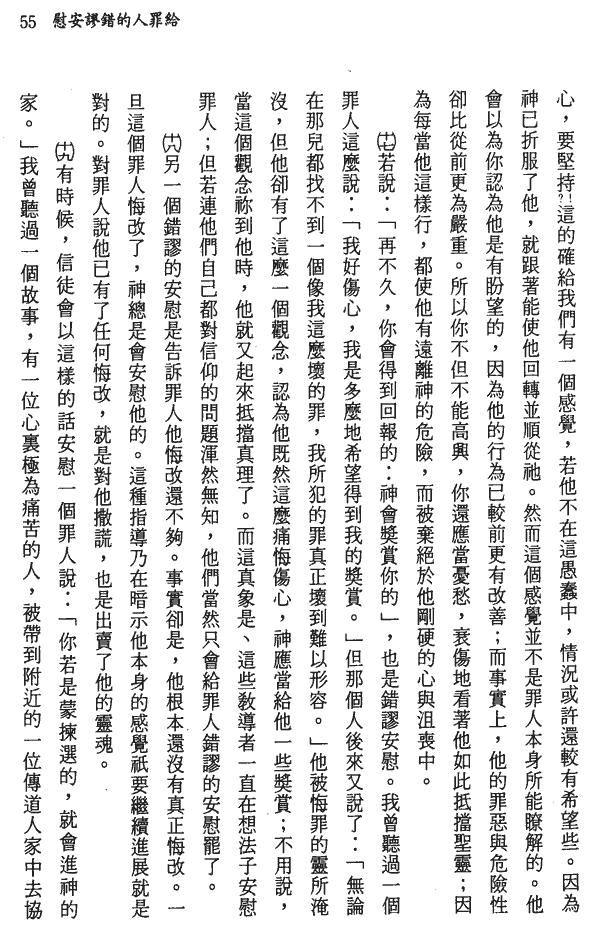 給罪人的錯謬安慰 55
心，要堅持?!這的確給我們有一個感覺，若他不在這愚蠢中，情況或許還較有希望些。因為
神已折服了他，就跟著能使他回轉並順從祂。然而這個感覺並不是罪人本身所能瞭解的。他
會以為你認為他是有盼望的，因為他的行為已較前更有改善；而事實上，他的罪惡與危險性
卻比從前更為嚴重。所以你不但不能高興，你還應當憂愁，衰傷地看著他如此抵擋聖靈；因
為每當他這樣行，都使他有遠離神的危險，而被棄絕於他剛硬的心與沮喪中。
㈰若說：「再不久，你會得到回報的：神會獎賞你的」，也是錯謬安慰。我曾聽過一個
罪人這麼說：「我好傷心，我是多麼地希望得到我的獎賞。」但那個人後來又說了：「無論
在那兒都找不到一個像我這麼壞的罪，我所犯的罪真正壞到難以形容。」他被悔罪的靈所淹
沒，但他卻有了這麼一個觀念，認為他既然這麼痛悔傷心，神應當給他一些獎賞；不用說，
當這個觀念祢到他時，他就又起來抵擋真理了。而這真象是、這些教導者一直在想法子安慰
罪人；但若連他們自己都對信仰的問題渾然無知，他們當然只會給罪人錯謬的安慰罷了。
(十八)另一個錯謬的安慰是告訴罪人他悔改還不夠。事實卻是，他根本還沒有真正悔改。一
旦這個罪人悔改了，神總是會安慰他的。這種指導乃在暗示他本身的感覺祇要繼續進展就是
對的。對罪人說他已有了任何悔改，就是對他撒謊，也是出賣了他的靈魂。
(十九)有時候，信徒會以這樣的話安慰一個罪人說：「你若是蒙揀選的，就會進神的
家。」我曾聽過一個故事，有一位心裏極為痛苦的人，被帶到附近的一位傳道人家中去協